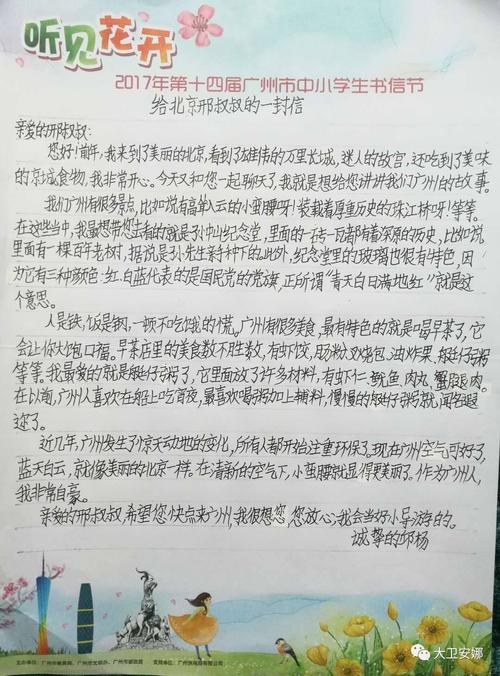 听见花开
2017年第十四届广州市中小学生书信节
给北京邢叔叔的一封信
亲爱的邢叔叔:
您好!前年,我来到了美丽的北京,看到了雄伟的万里长城,迷人的故宫,还吃到了美味
的京城食物,我非常开心。今天又和您一起聊天了,我就是想给您讲讲我们广州的故事。
我们广州有很多景点,比如说有高耸入云的小蛮腰呀!装载着厚重历史的珠江桥呀!等等。
在这些当中,我最想带您去看的就是孙中山纪念堂,里面的一砖一瓦都有着深厚的历史,比如说
里面有一棵百年老树,据说是孙先生亲手种下的。此外,纪念堂里的玻璃也很有特色,因
为它有三种颜色:红白蓝代表的是国民党的党旗,正所谓“青天白日满地红”就是这
个意思。
人是铁,饭是钢,一顿不吃饿的慌。广州有很多美食,最有特色的就是喝早茶了,它
会让你大饱口福。早茶店里的美食数不胜数,有虾饺,肠粉,叉烧包,油炸果,艇仔粥
等等。我最爱的就是艇仔粥了,它里面放了许多材料,有虾仁、鱿鱼、肉丸、蟹腿肉。
在以前,广州人喜欢在船上吃宵夜,最喜欢喝粥加上辅料,慢慢的艇仔粥就闻名遐
迩了。
近几年,广州发生了惊天动地的变化,所有人都开始注重环保了。现在广州空气可好了,
蓝天白云,就像美丽的北京一样。在清新的空气下,小蛮腰就显得更美丽了。作为广州人,
我非常自豪。
亲爱的邢叔叔,希望您快点来广州,我很想您,您放心,我会当好小导游的。
诚挚的邱杨
大卫安娜